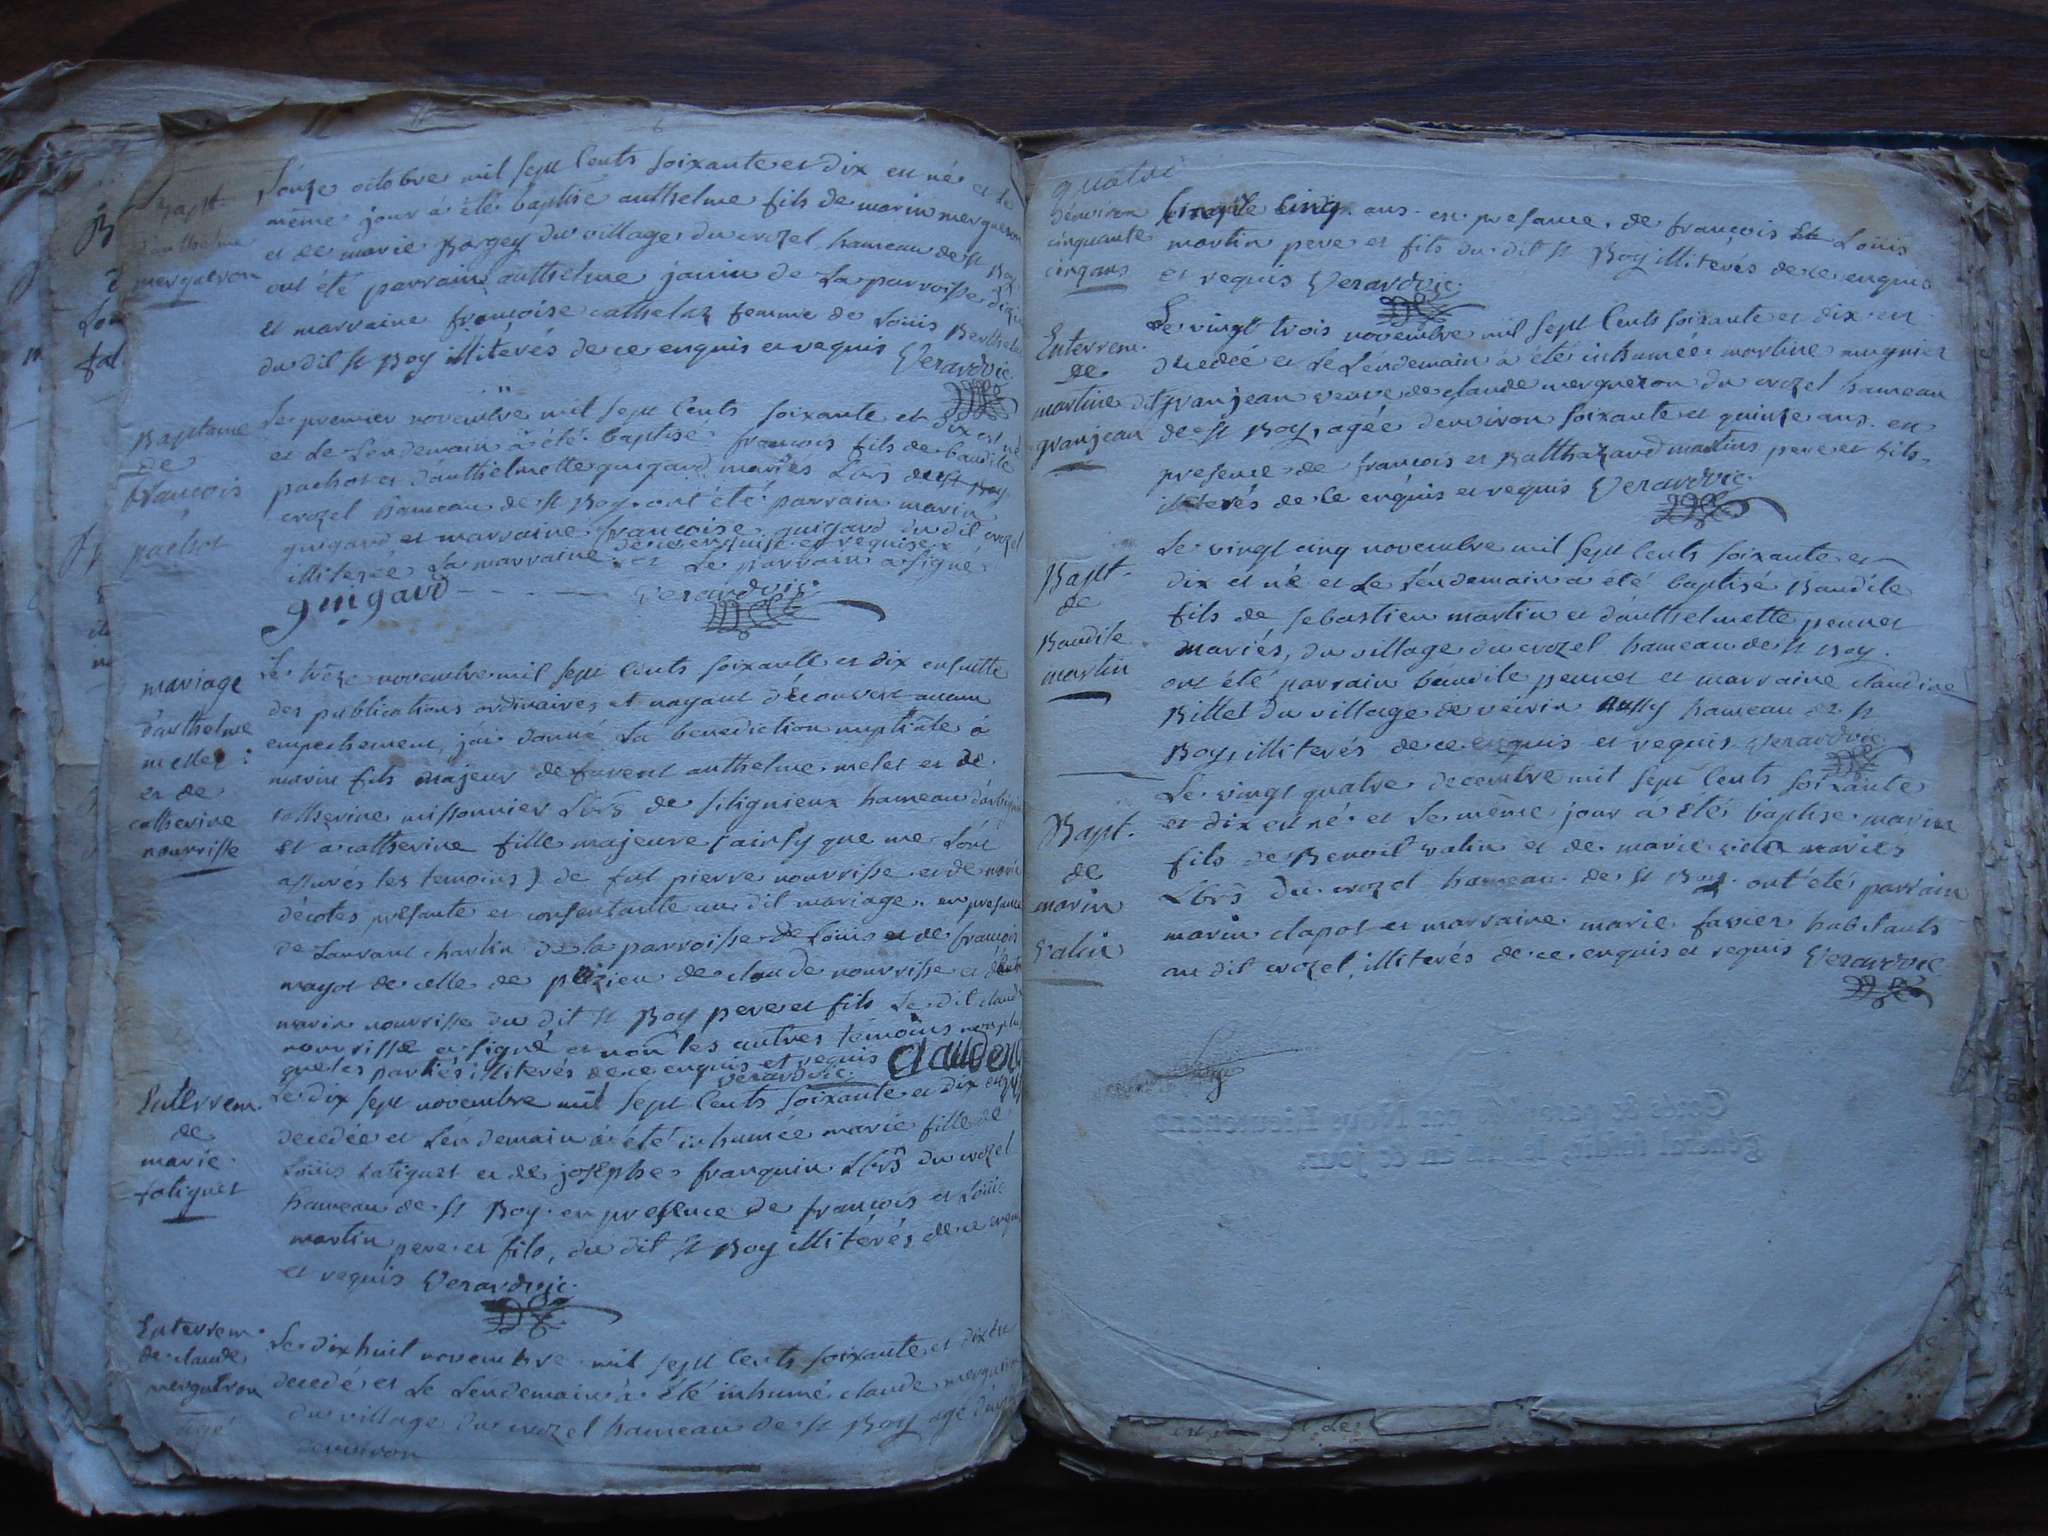 Bapt.
d'anthelme
merqueron
onze octobre mil sept cents soixante et dix est né et le
même jour à été baptisé anthelme fils de marin merqueron
et de marie Borgey du village du crozel hameau de st Boy
ont été parrain anthelme janin de la parroisse
et marraine françoise cathelaz femme de Loüis Berthelet
du dit st Boy illiterés de ce enquis et requis Verardvic
Baptame
de
françois
pachot
Le premier novembre mil sept cents soixante et dix est né
et le lendemain à été baptisé françois fils de baudile
pachot et d'anthelmette guigard mariés Lbrs de st Boy
crozel hameau de st Boy ont été parrain marin
guigard et marraine françoise guigard du dit crozel
illiterée la marraine de ce enquise et requise et le parrain a signé
guigard verardvic
mariage
d'anthelme
mellet :
et de
catherine
nourrisse
Le treze novembre mil sept cents soixante et dix ensuitte
des publications ordinaires et nayant découvert aucun
empechement, jái donné la benediction nuptiale à
marin fils majeur de furent anthelme melet et de
catherine missonnier Lbrs de silignieux hameau d'arbignieu
et a catherine fille majeure (ainsy que me l'ont
assurés les temoins) de fut pierre nourrisse et de marie
décotes présante et consentante au dit mariage. en presance
de Laurant charlin de la parroisse de Loüis et de françois
mayot de celle de pezieu de claude nourrisse et d'anth
marin nourrisse du dit st Boy pere et fils le dit claude
nourrisse a signé et non les autres témoins non plus
que les partiés illiterés de ce enquis et requis Claude
verardvic
Enterrem.
de
marie
fatiguet
Le dix sept novembre mil sept cents soixante et dix est
decedée et léndemain à été inhumée marie fille de
Loüis fatiguet et de josephe franquin Lbrs du crozel
hameau de st Boy en presence de françois et Loüis
martin pere et fils, du dit st Boy illitérés de ce enquis
et requis Verardvic
Enterrem.
de claude
merqueron
agé
Le dix huit novembre mil sept cents soixante et dix est
decedé et le lendemain à été inhumé claude merqueron
du village du crozel hameau de st Boy agé
denviron
quatre
dénviron
cinquante
cinq ans
cinquante cinq ans en presance de françois et Loüis
martin pere et fils du dit st Boy illiterés de ce enquis
et requis Verardvic
Enterrem.
de
martine
granjean
Le vingt trois novembre mil sept cents soixante et dix est
decedée et le lendemain à été inhumée martine mugnier
dit granjean veuve de claude merqueron du crozel hameau
de st Boy, agée denviron soixante et quinze ans en
presence de francois et Balthazard martins pere et fils
illiterés de ce enquis et requis Verardvic
Bapt.
de
Baudile
martin
Le vingt cinq novembre mil sept cents soixante et
dix est né et le léndemain a été baptisé Baudile
fils de sebastien martin et d'anthelmette pennet
mariés, du village du crozel hameau de st Boy
ont été parrain baudile pennet et marraine claudine
Billet du village de veirin hameau de st
Boy, illiterés de ce enquis et requis verardvic
Bapt.
de
marin
valin
Le vingt quatre decembre mil sept cents soixante
et dix est né et le même jour à été baptise marin
fils de Benoit valin et de marie mariés
Lbrs du crozel hameau de st Boy ont été parrain
marin clapot et marraine marie favier habitants
au dit crozel, illiterés de ce enquis et requis Verardvic